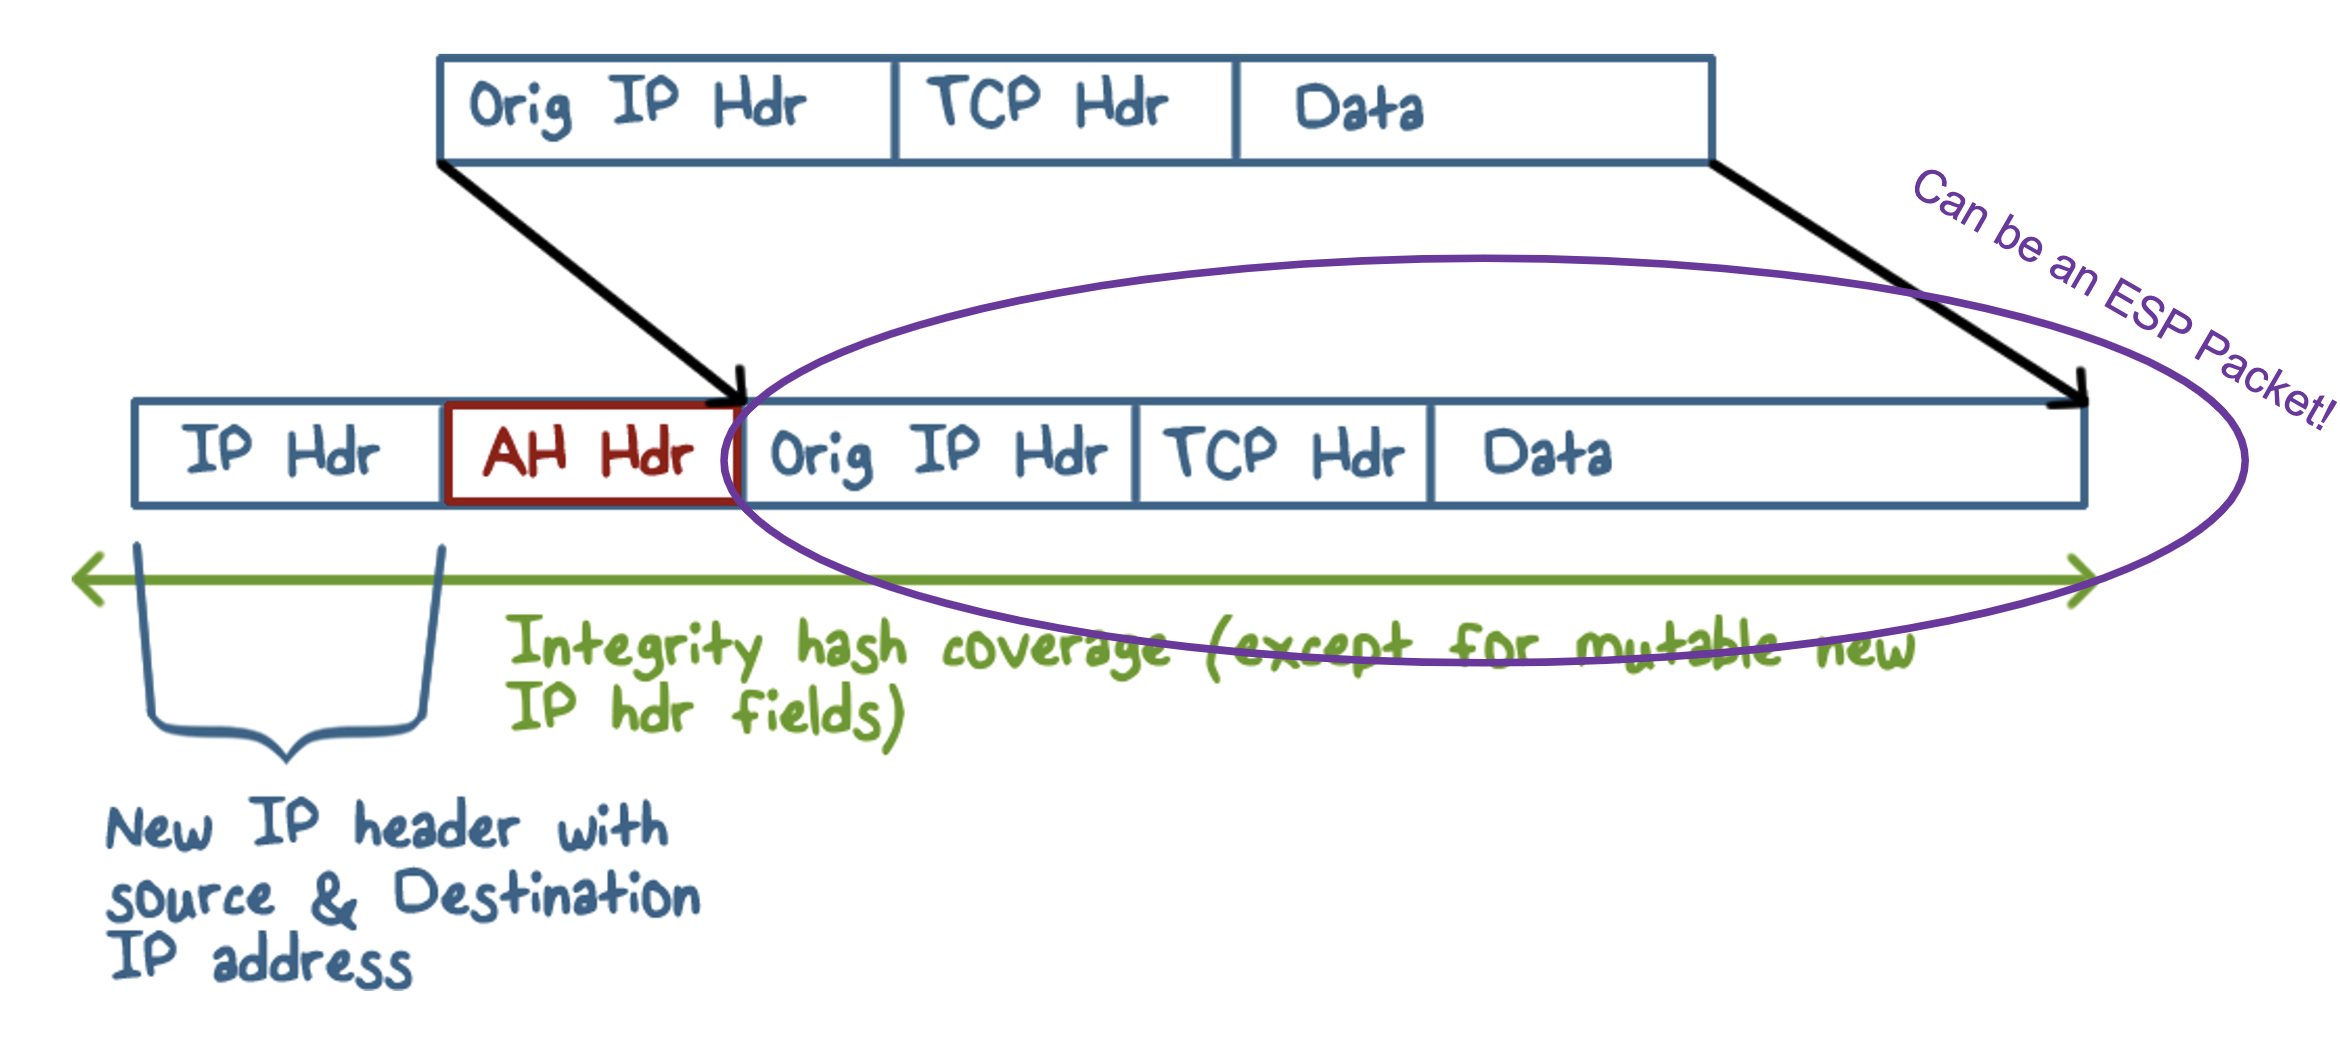 Orig IP Hdr TCP Hdr Data
Can be an ESP Packet!
IP Hdr AH Hdr Orig IP Hdr TCP Hdr Data
Integrity hash coverage (except for mutable new
IP hdr fields)
New IP header with
source & Destination
IP address